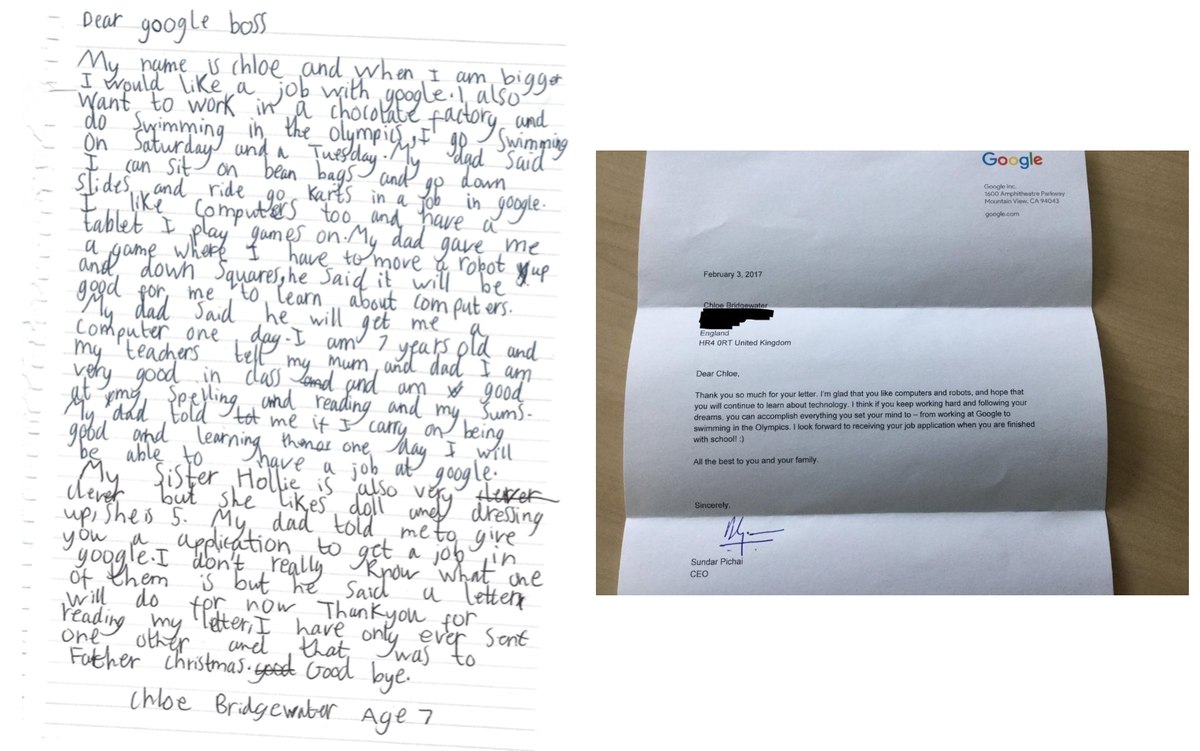 Dear google boss
My name is chloe and when I am bigger
I would like a job with google. I also
want to work in a chocolate factory and
do swimming in the olympics, I go swimming
on Saturday and a Tuesday. My dad said
I can sit on bean bags and go down
slides and ride go karts in a job in google.
I like computers too and have a
tablet I play games on. My dad gave me
a game where I have to move a robot up
and down squares, he said it will be
good for me to learn about computers.
My dad said he will get me a
computer one day. I am 7 years old and
my teachers tell my mum and dad I am
very good in class and and am good
at my spelling and reading and my sums.
My dad told me if I carry on being
good and learning one day I will
be able to have a job at google.
My sister Hollie is also very clever
clever but she likes doll and dressing
up, she is 5. My dad told me to give
you a application to get a job in
google. I don't really know what one
of them is but he said a letter
will do for now Thankyou for
reading my letter, I have only ever sent
one other and that was to
Father christmas. good Good bye.
Chloe Bridgewater Age 7
Google
Google Inc.
1600 Amphitheatre Parkway
Mountain View, CA 94043
google.com
February 3, 2017
Chloe Bridgewater
England
HR4 0RT United Kingdom
Dear Chloe,
Thank you so much for your letter. I'm glad that you like computers and robots, and hope that
you will continue to learn about technology. I think if you keep working hard and following your
dreams, you can accomplish everything you set your mind to – from working at Google to
swimming in the Olympics. I look forward to receiving your job application when you are finished
with school! :)
All the best to you and your family.
Sincerely,
Sundar Pichai
CEO